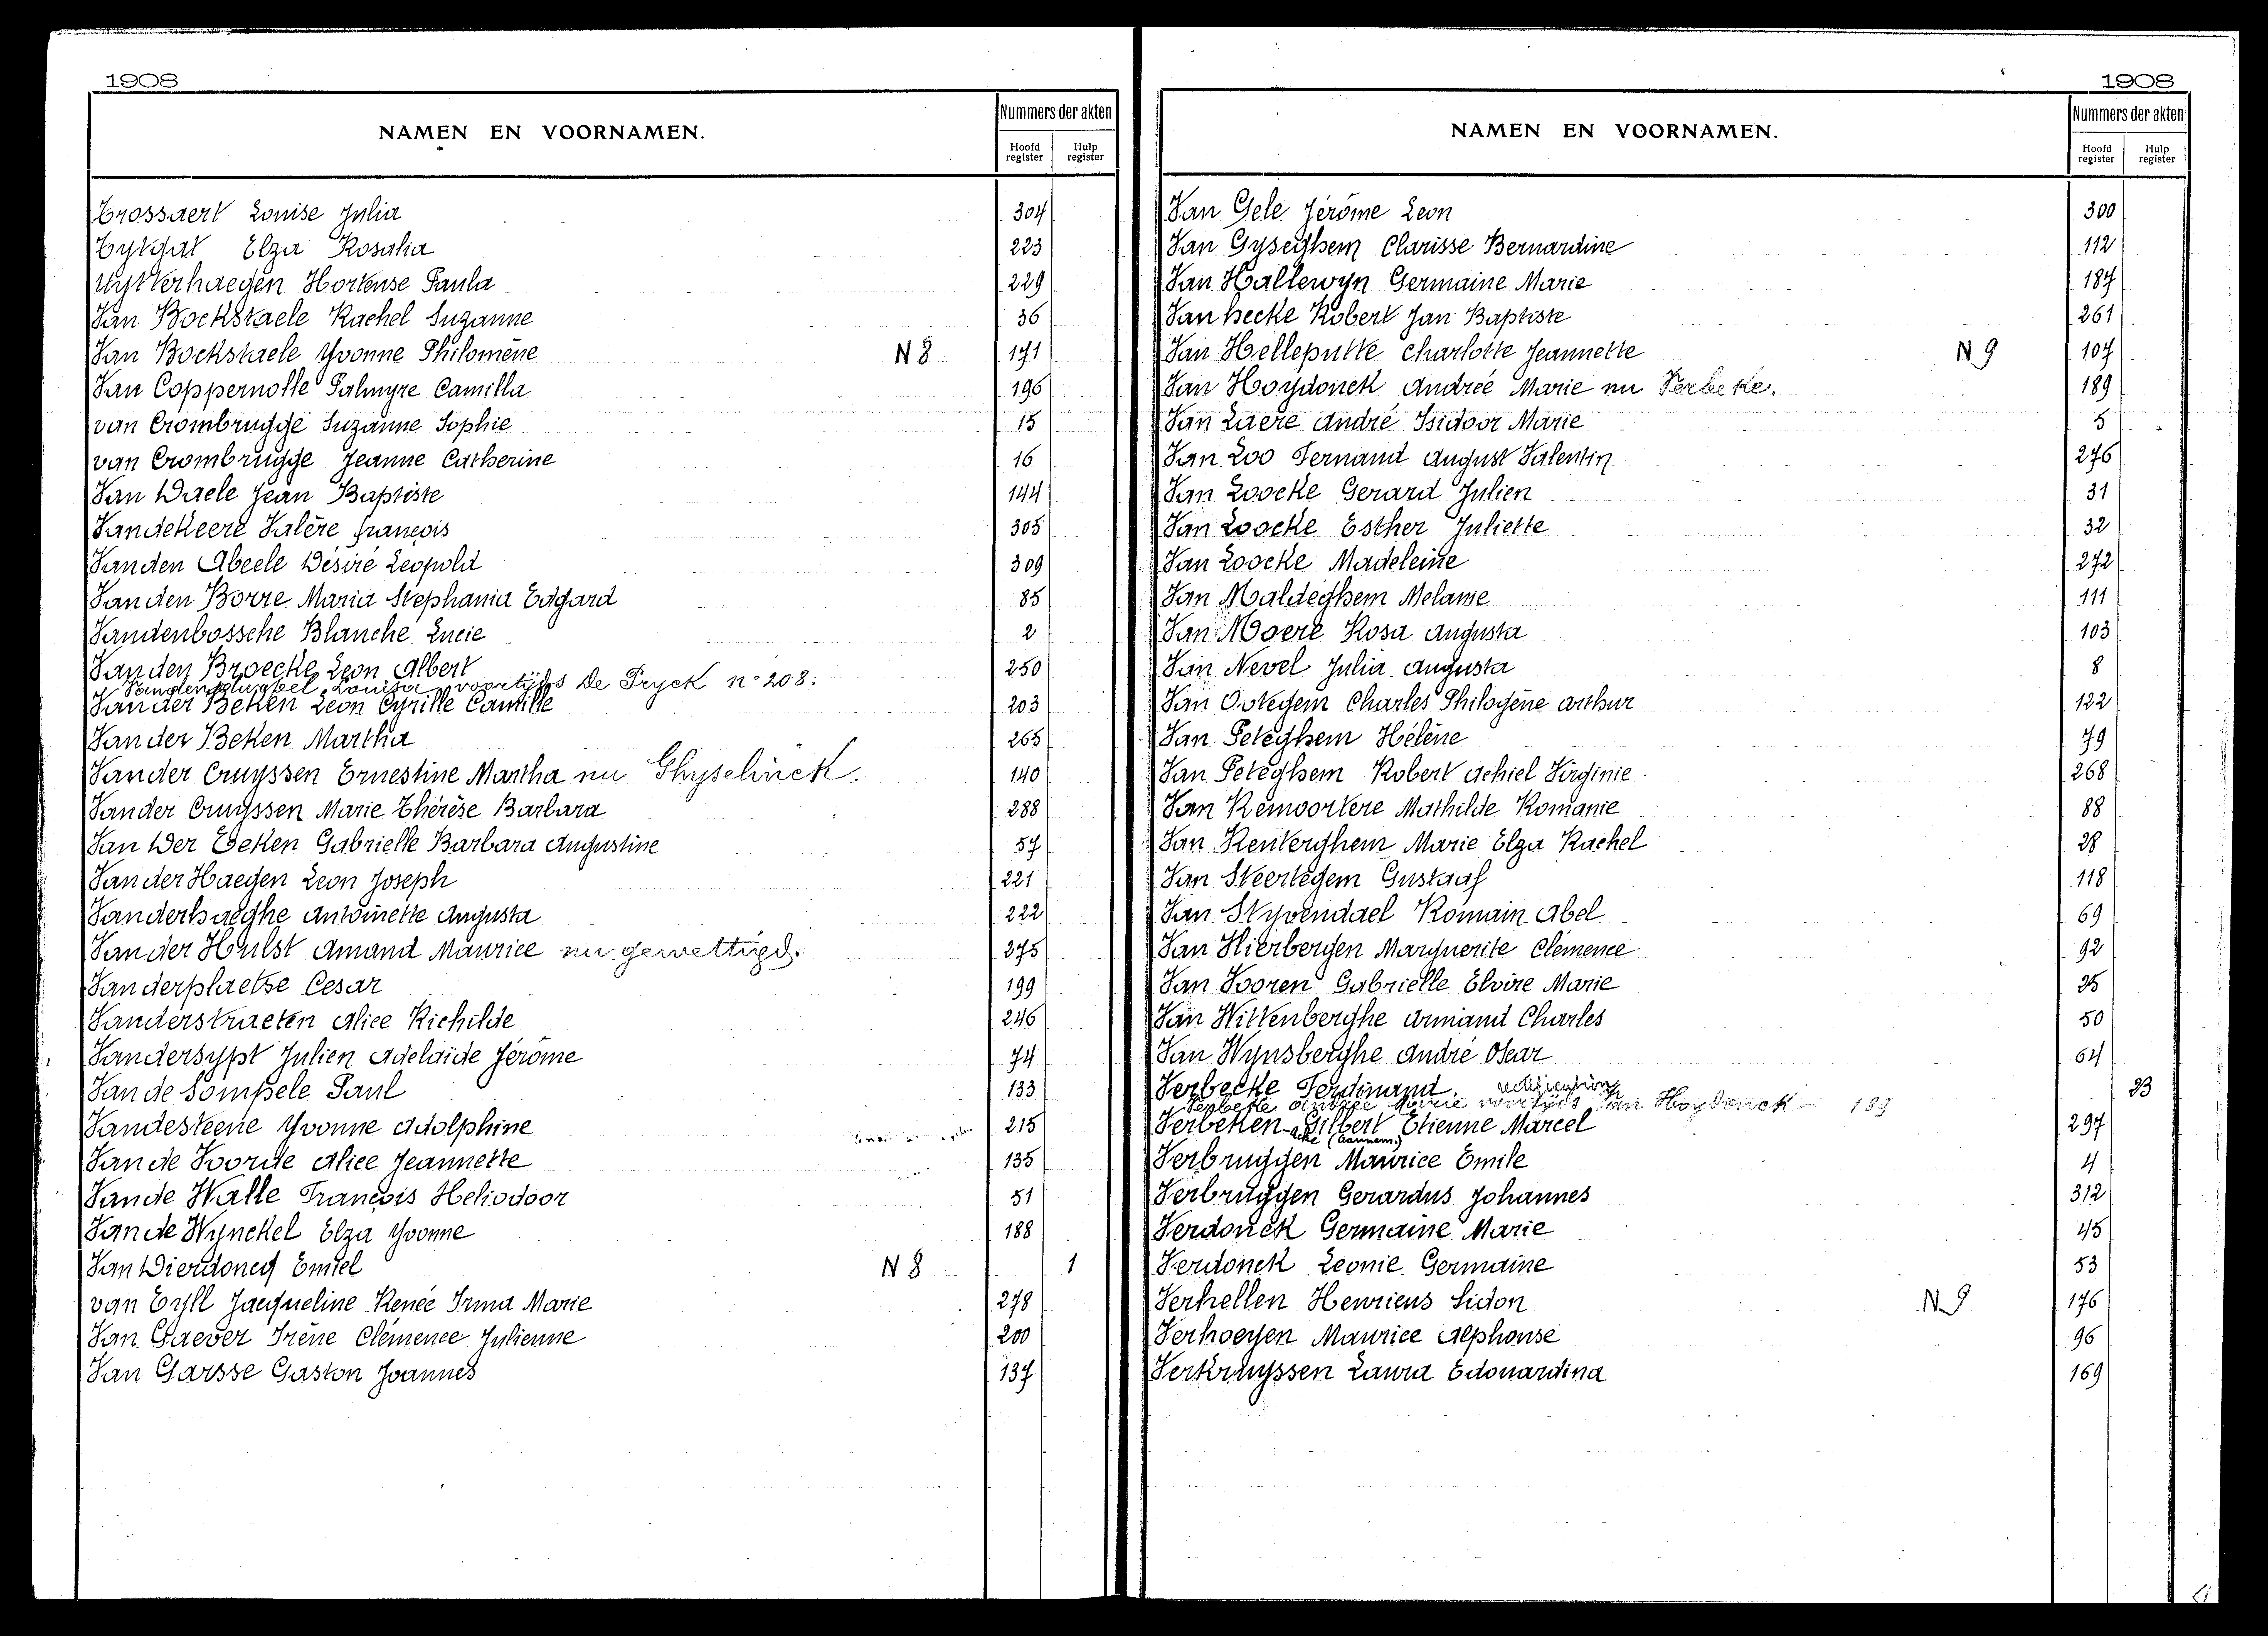 1908
NAMEN EN VOORNAMEN.
Nummers der akten
Hoofd register
Hulp register
Trossaert Louise Julia 304
Tytgat Elza Rosalia 223
Uytterhaegen Hortense Paula 229
Van Bockstaele Rachel Suzanne 36
Van Bockstaele Yvonne Philomène N 8 171
Van Coppernolle Palmyre Camilla 196
van Crombrugge Suzanne Sophie 15
van Crombrugge Jeanne Catherine 16
Van Daele Jean Baptiste 144
Vandekeere Valère françois 305
Vanden Abeele Désiré Leopold 309
Vanden Borre Maria Stephania Edgard 85
Vandenbossche Blanche Lucie 2
Vanden Broecke Leon Albert 250
Louisa voortijds De Pryck n° 208.
Vander Beken Leon Cyrille Camille 203
Vander Beken Martha 265
Vander Cruyssen Ernestine Martha nu Ghyselinck. 140
Vander Cruyssen Marie Thérèse Barbara 288
Van Der Eeken Gabrielle Barbara Augustine 57
Vander Haegen Leon Joseph 221
Vanderhaeghe Antoinette Augusta 222
Vander Hulst Amand Maurice nu gewettigd. 275
Vanderplaetse Cesar 199
Vanderstraeten Alice Richilde 246
Vandersypt Julien Adelaïde Jérôme 74
Van de Sompele Paul 133
Vandesteene Yvonne Adolphine 215
Van de Voorde Alice Jeannette 135
Van de Walle François Heliodoor 51
Van de Wynckel Elza Yvonne 188
Van Dierdoncq Emiel N 8 1
van Eyll Jacqueline Renée Irma Marie 278
Van Gaever Irène Clémence Julienne 200
Van Garsse Gaston Joannes 137
1908
NAMEN EN VOORNAMEN.
Nummers der akten
Hoofd register
Hulp register
Van Gele Jérôme Leon 300
Van Gyseghem Clarisse Bernardine 112
Van Hallewyn Germaine Marie 187
Van hecke Robert Jan Baptiste 261
Van Helleputte Charlotte Jeannette N 9 107
Van Hoydonck Andrée Marie nu Verbeke. 189
Van Laere André Isidoor Marie 5
Van Loo Fernand August Valentin 276
Van Loocke Gerard Julien 31
Van Loocke Esther Juliette 32
Van Loocke Madeleine 272
Van Maldeghem Melanie 111
Van Moere Rosa Augusta 103
Van Nevel Julia Augusta 8
Van Ootegem Charles Philogène Arthur 122
Van Peteghem Hélène 79
Van Peteghem Robert Achiel Virginie 268
Van Remoortere Mathilde Romanie 88
Van Renterghem Marie Elza Rachel 28
Van Steertegem Gustaaf 118
Van Styvendael Romain Abel 69
Van Hierbergen Marguerite Clémence 92
Van Vooren Gabrielle Elvire Marie 25
Van Wittenberghe Armand Charles 50
Van Wynsberghe André Oscar 64
Verbecke Ferdinand. rectification 23
Verbeke Andrée Marie voortijds Van Hoydonck - 189
Verbeken Gilbert Etienne Marcel 297
acte (aannem.)
Verbruggen Maurice Emile 4
Verbruggen Gerardus Johannes 312
Verdonck Germaine Marie 45
Verdonck Leonie Germaine 53
Verhellen Henricus Sidon N 9 176
Verhoeyen Maurice Alphonse 96
Verkruyssen Laura Edouardina 169